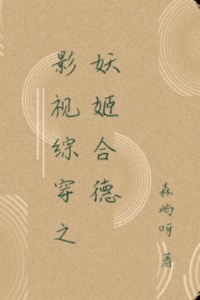 影视綜穿之
妖姬合德
森屿呀 著